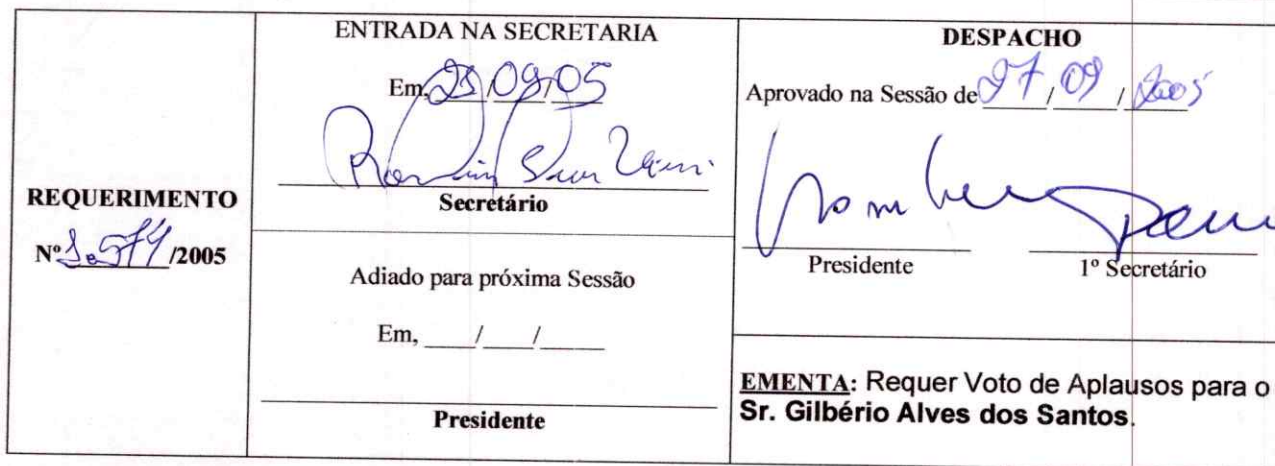 REQUERIMENTO
Nº 1.574 /2005
ENTRADA NA SECRETARIA
Em, 23/09/05
Secretário
Adiado para próxima Sessão
Em, ____/____/______
Presidente
DESPACHO
Aprovado na Sessão de 27 / 09 / 2005
Presidente 1º Secretário
EMENTA: Requer Voto de Aplausos para o
Sr. Gilbério Alves dos Santos.